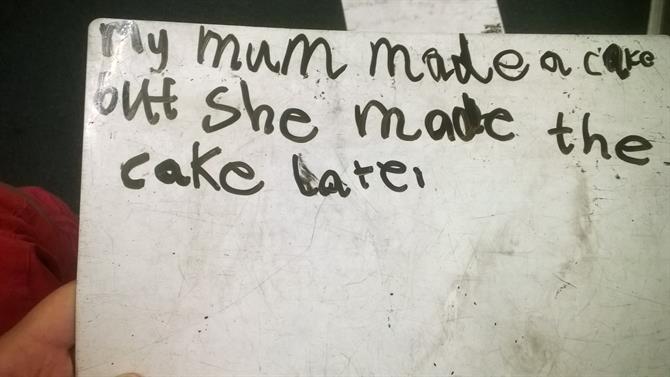 My mum made a cake
butt she made the
cake later